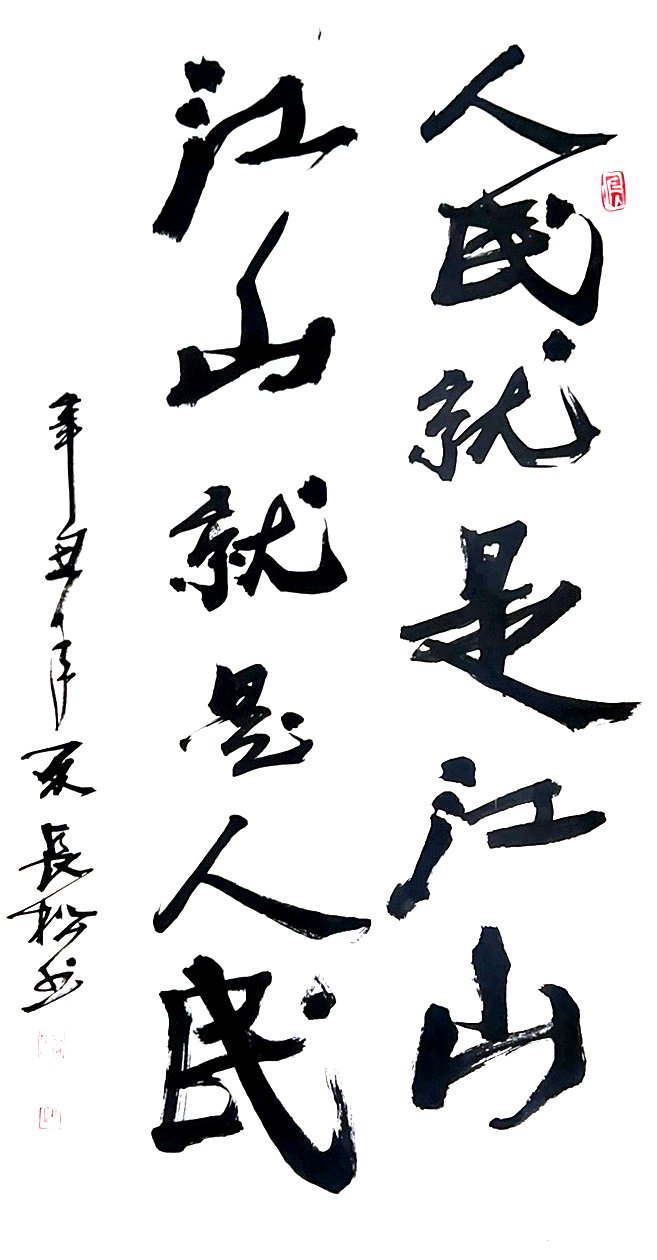 人民就是江山
江山就是人民
辛丑年夏長松书